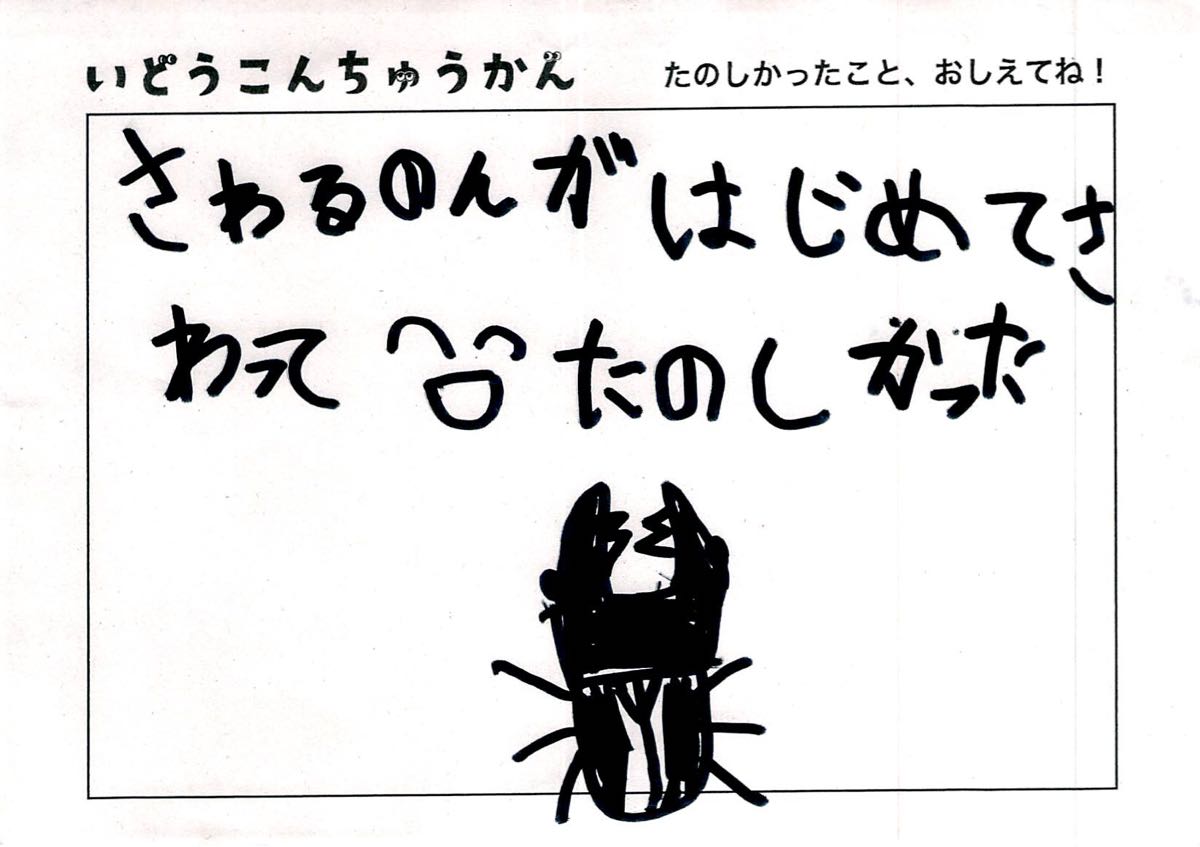 いどうこんちゅうかん
たのしかったこと、おしえてね！
さわるのんがはじめてさ
わってたのしかった